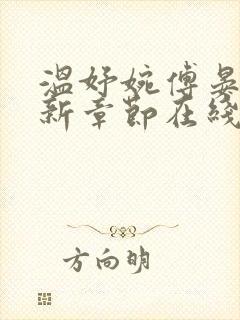 温妤婉傅晏
新章节在线
方向明